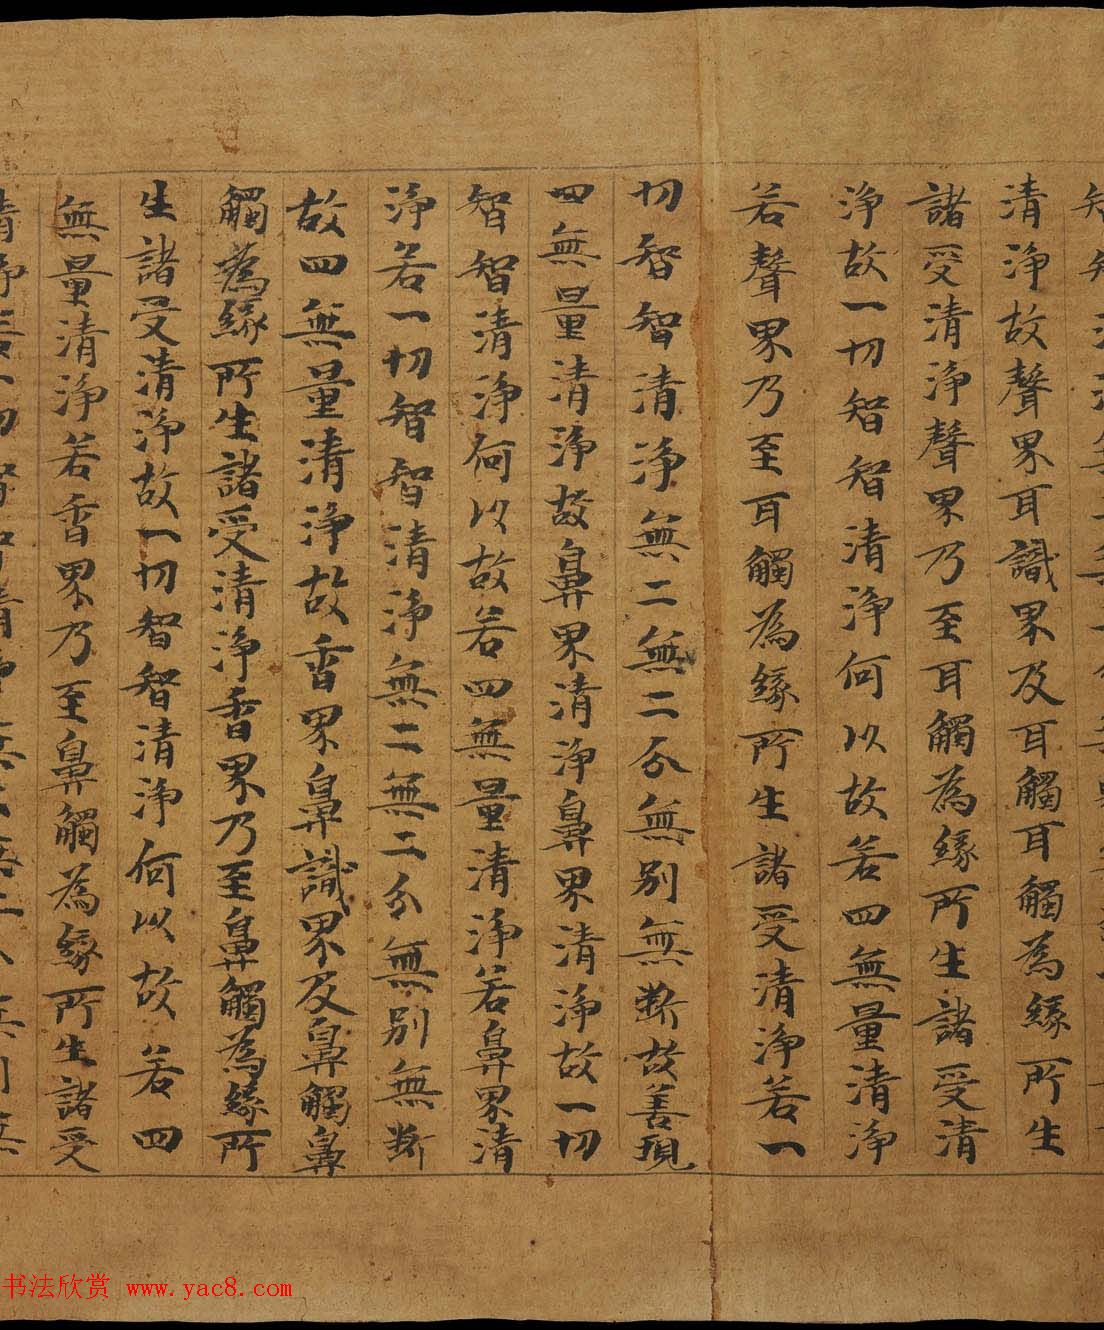 清淨故聲界耳識界及耳觸耳觸為緣所生
諸受清淨聲界乃至耳觸為緣所生諸受清
淨故一切智智清淨何以故若四無量清淨
若聲界乃至耳觸為緣所生諸受清淨若一
切智智清淨無二無二分無別無斷故善現
四無量清淨故鼻界清淨鼻界清淨故一切
智智清淨何以故若四無量清淨若鼻界清
淨若一切智智清淨無二無二分無別無斷
故四無量清淨故香界鼻識界及鼻觸鼻
觸為緣所生諸受清淨香界乃至鼻觸為緣所
生諸受清淨故一切智智清淨何以故若四
無量清淨若香界乃至鼻觸為緣所生諸受
书法欣赏 www.yac8.com